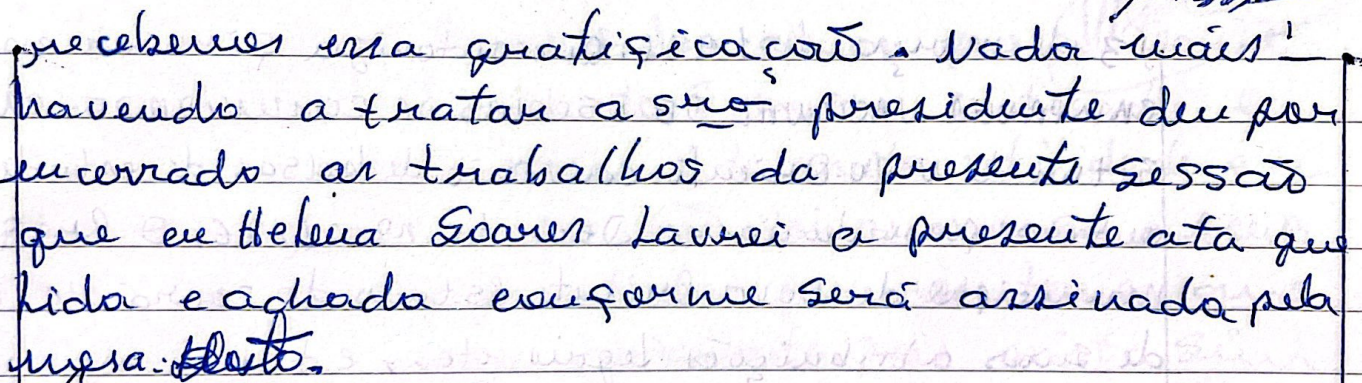 recebemos essa gratificação. Nada mais
havendo a tratar a sra presidente deu por
encerrado os trabalhos da presente sessão
que eu Helena Soares Lavrei a presente ata que
Lida e achada conforme será assinada pela
mesa.